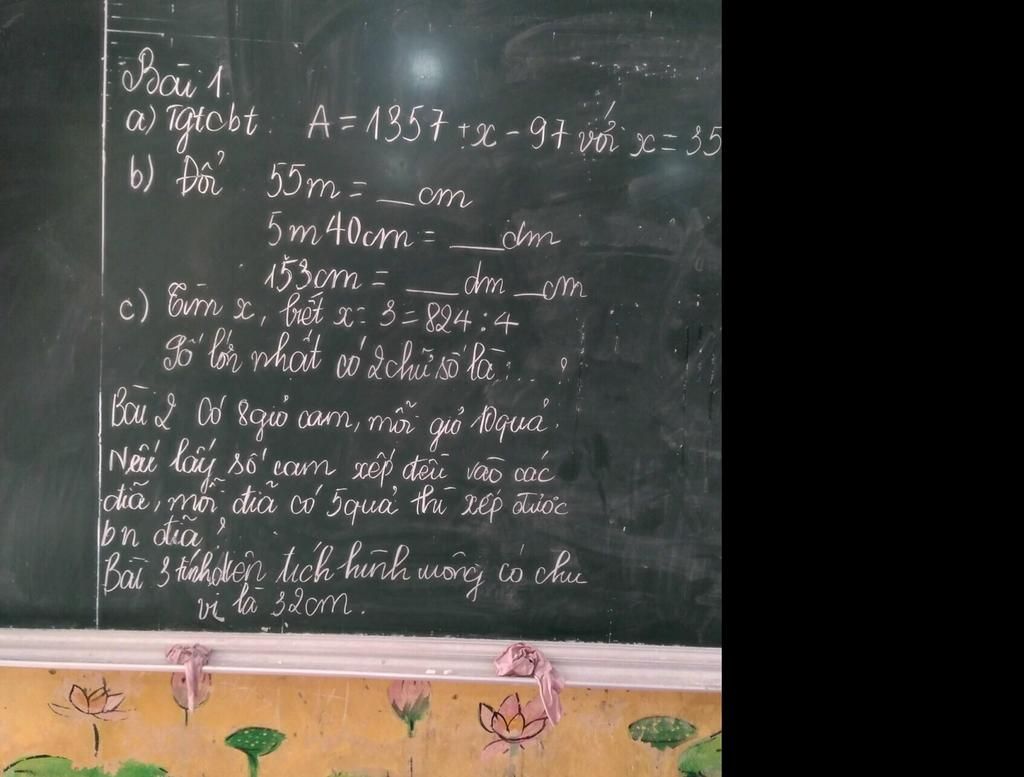 Bài 1
a) Tgtcbt. A = 1357 + x - 97 với x = 35
b) Đổi 55m = __ cm
5m40cm = ___ dm
153cm = ___ dm __ cm
c) Tìm x, biết x : 3 = 824 : 4
Số lớn nhất có 2 chữ số là : ... ?
Bài 2 Có 8 giỏ cam, mỗi giỏ 10 quả.
Nếu lấy số cam xếp đều vào các
đĩa, mỗi đĩa có 5 quả thì xếp được
bn đĩa ?
Bài 3 tính diện tích hình vuông có chu
vi là 32cm.